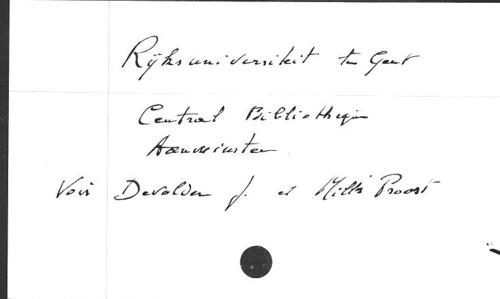 Rijksuniversiteit te Gent
Central Bibliotheque
Aanwinsten
Voir Devolder J. et Mills Proost